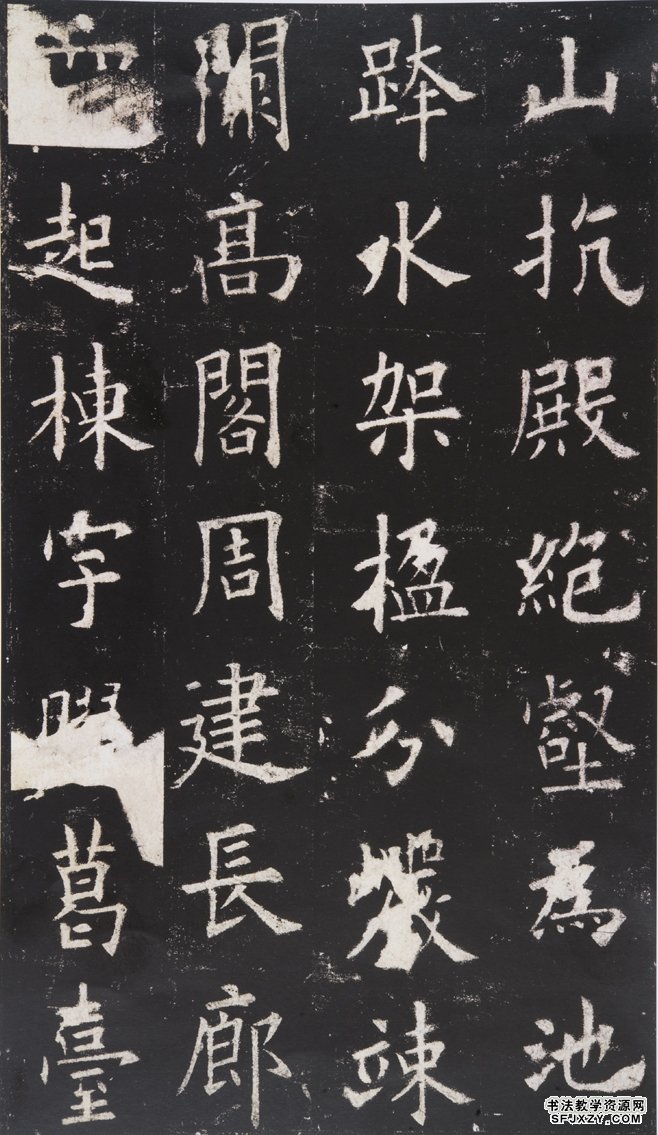 山抗殿絕壑為池
跨水架楹分巖竦
闕高閣周建長廊
四起棟宇膠葛臺
书法教学资源网
SFJXZY.COM